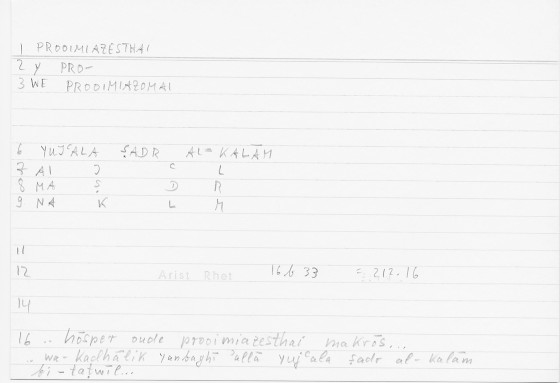 1 PROOIMIAZESTHAI
2 Y PRO-
3 WE PROOIMIAZOMAI
6 YUJʿALA ṢADR AL= KALĀM
7 AI J C L
8 MA Ṣ D R
9 NA K L M
11
12 Arist Rhet 16b 33 = 212.16
14
16 .. hōsper oude prooimiazesthai makrōs...
. wa-kadhālik yanbaghī ʾallā yujʿala ṣadr al-kalām
bi-taṭwīl...